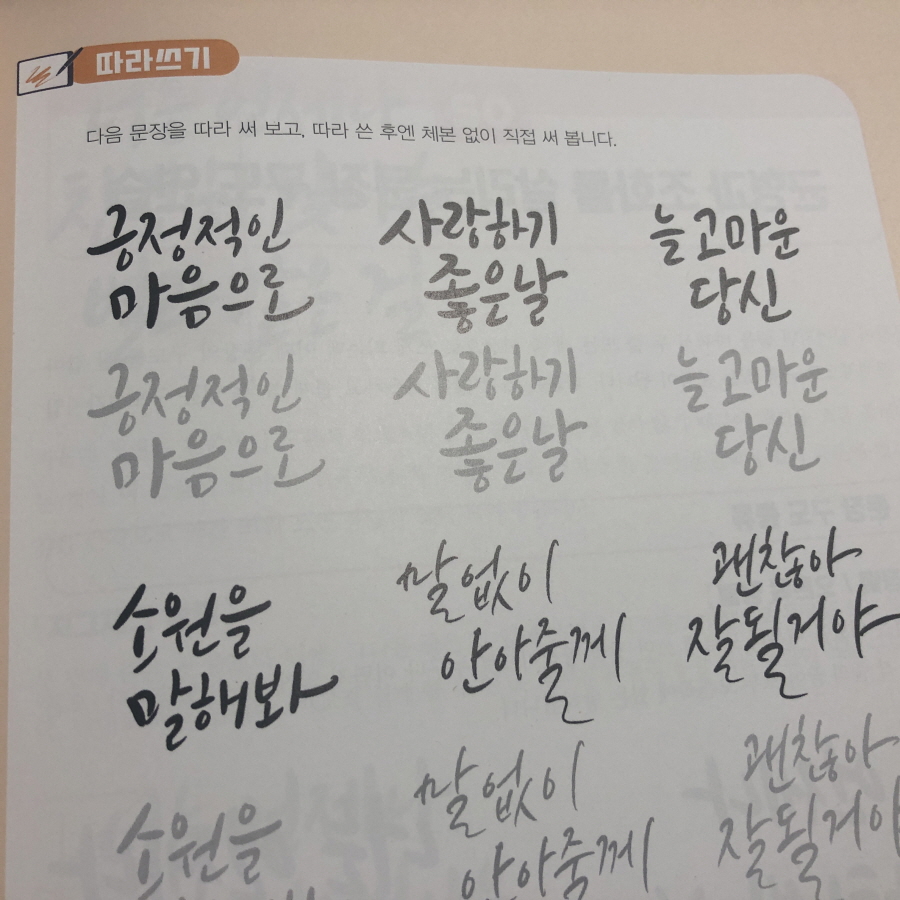 따라쓰기
다음 문장을 따라 써 보고, 따라 쓴 후엔 체본 없이 직접 써 봅니다.
긍정적인
마음으로
사랑하기
좋은날
늘 고마운
당신
긍정적인
마음으로
사랑하기
좋은날
늘 고마운
당신
소원을
말해봐
말없이
안아줄께
괜찮아
잘될거야
소원을
말없이
안아줄께
괜찮아
잘될거야